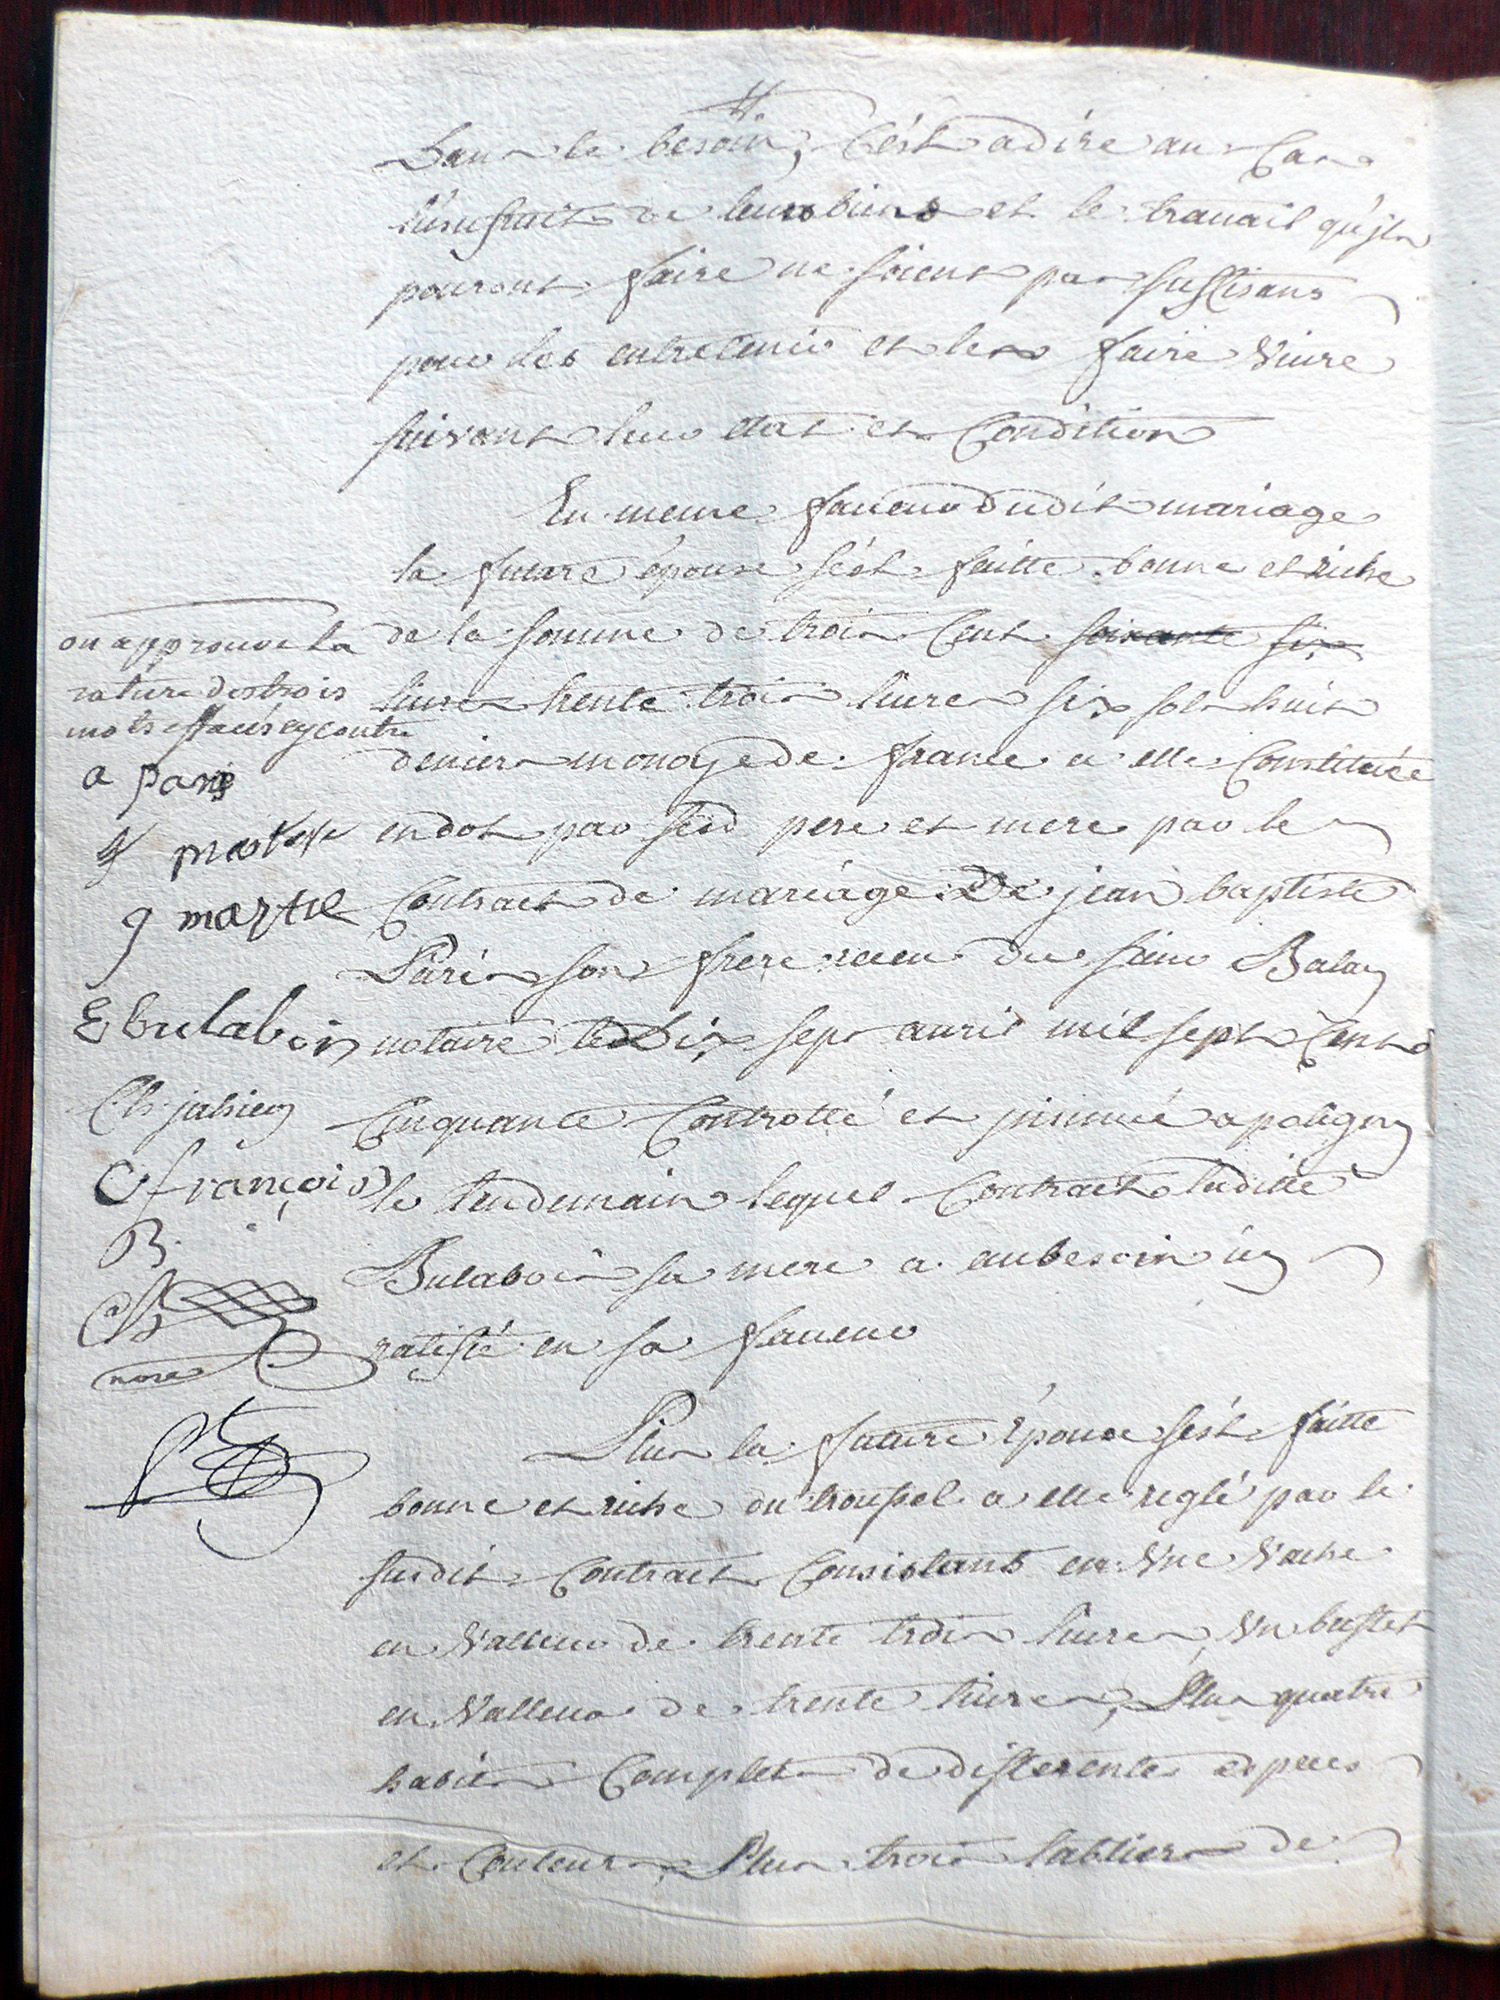 dans le besoin, c'est a dire au cas
l'usufruit de leurs biens et le travail qu'jls
pouront faire ne soient pas suffisans
pour les entretenir et les faire vivre
suivant leur etat et condition
En meme faveur dudit mariage
la future épouse s'est faitte bonne et riche
de la somme de trois cent soixante six
livres trente trois livres six sols huit
deniers monoye de france a elle constituée
en dot par sesd pere et mere par le
contract de mariage de jean baptiste
Paris son frere receu du sieur Balay
notaire le dix sept avril mil sept cent
cinquante controllé et jnsinué a poligny
le lendemain lequel contract laditte
Bulabois sa mere a au besoin icy
ratifié en sa faveur
Plus la future épouse s'est faitte
bonne et riche du troussel a elle reglé par le
susdit contract consistant en une vache
en valleur de trente trois livres, un buffet
en valleur de trente livres, Plus quatre
habits complets de differentes especes
et couleurs, Plus trois tabliers de
on approuve la
rature des trois
mots effacés cy contre
a paris
martel
g martel
E bulabois
Ch jahiey
C françois
B.
nore